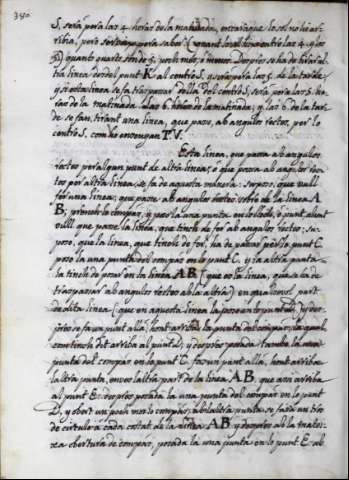 390
S, será pera las 4. horas de la matinada, encara que lo sol no hi ar-
ribia, pero servirá pera saber quant lo sol ha entre las 4. y las
5) quant quarts son de 5. poch mes, o menos. Despres se ha de tirar al-
tra linea desdel punt K al centro S, y será pera las 5. de la tarde
y si esta linea se fa traspasar dellá del centro S, será pera las 5. ho-
ras de la matinada. Las 6. horas de la matinada; y las 6 de la tar-
de se fan, tirant una linea, que pase, ab angulos rectos, per lo
centro S, com ho ensenyan T. V.
Esta linea, que passa ab angulos
rectos per algun punt de altra linea; o que passa ab angulos rec-
tos per altra linea, se fa de aquesta manera: suposo, que vull
fer una linea; que passe ab angulos rectos sobre de la linea A
B; primer lo compas, y poso la una punta en lo lloch, o punt ahont
vull que passe la linea, que tinch de fer ab angulos rectos: su-
poso, que la linea, que tinch de fer, ha de passar per lo punt C
poso la una punta del compas en lo punt C. y la altra punta
la tinch de posar en la linea A B (que es la linea, que ha de
traspassar ab angulos rectos ab la altra) en qualsevol part
de dita linea (: que en aquesta linea la poso en lo punt D:) y des-
pres se fa un punt allá, hont arriba la punta del compas, la qual,
com tinch dit arriba al punt D; y despres posada tambe la una
punta del compas en lo punt C. faz un punt allá, hont arriba
la altra punta, en vos la altra part de la linea A B, que aqui arriba
al punt E: despres posada la una punta del compas en lo punt
D, y obert un poch mes lo compas, ab la altra punta se fará un tros
de circulo a cada costat de la linea A B y despres ab la matei-
xa obertura de compas, posada la una punta en lo punt E ab